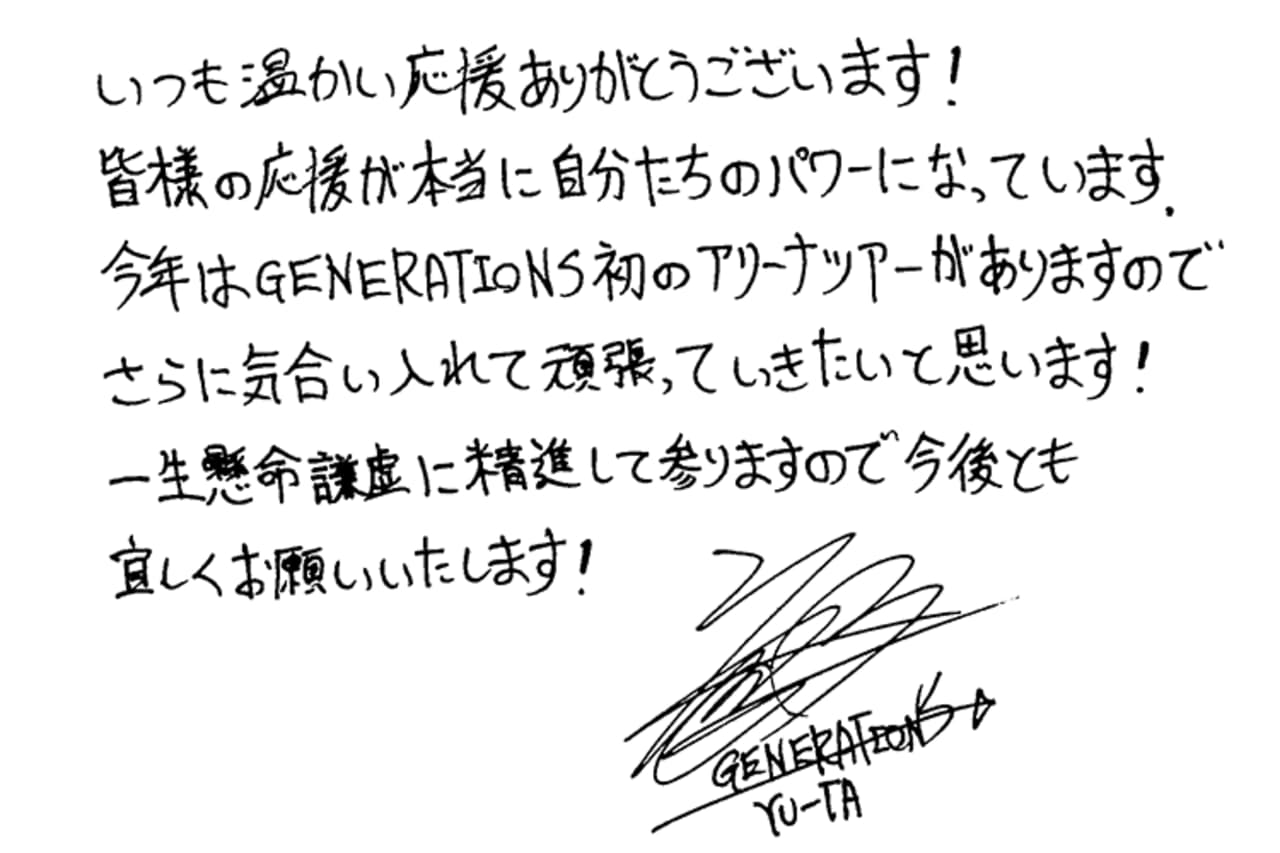 いつも温かい応援ありがとうございます!
皆様の応援が本当に自分たちのパワーになっています.
今年はGENERATIONS初のアリーナツアーがありますので
さらに気合い入れて頑張っていきたいと思います!
一生懸命謙虚に精進して参りますので今後とも
宜しくお願いいたします!
GENERATIONS
YU-TA